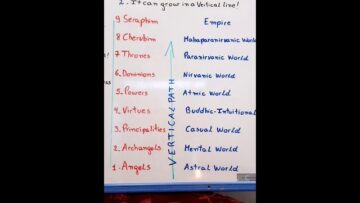 2. It can grow in a Vertical line!
9 Seraphim Empire
8 Cherubim Mahaparanirvanic World
7 Thrones Paranirvanic World
6. Dominions Nirvanic World
5. Powers Atmic World
4. Virtues Buddhic-Intuitional
3. Principalities Casual World
2. Archangels Mental World
1. Angels Astral World
VERTICAL PATH